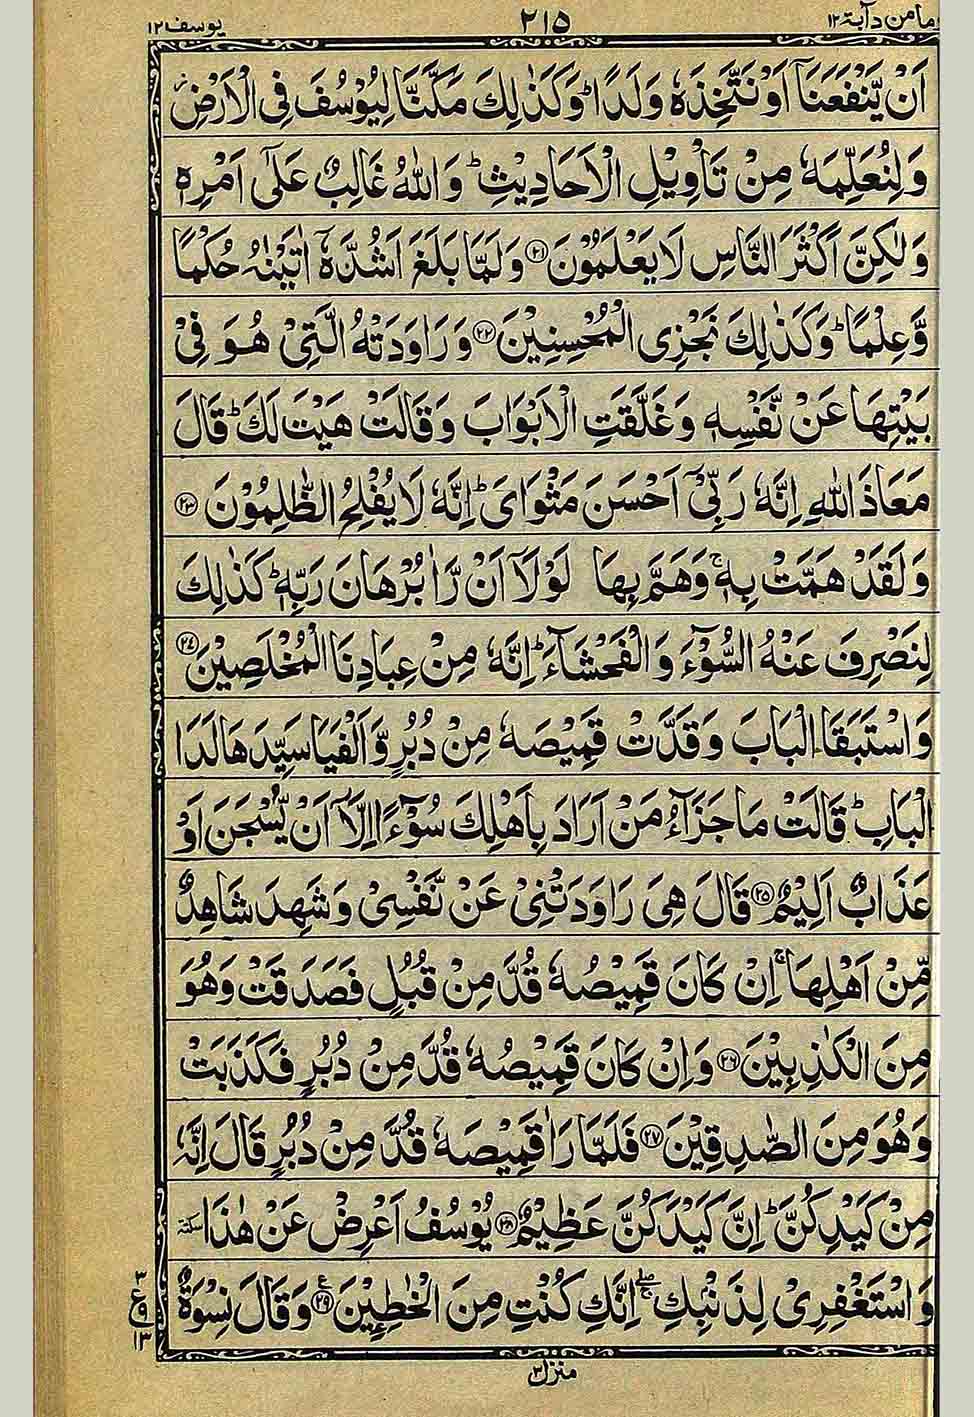 ومامن دآبة ۱۲
۲۱۵
يوسف ۱۲
اَنْ يَّنْفَعَنَاۤ اَوْ نَتَّخِذَهٗ وَلَدًا ؕ وَكَذٰلِكَ مَكَّنَّا لِيُوْسُفَ فِى الْاَرْضِ ز
وَلِنُعَلِّمَهٗ مِنْ تَاْوِيْلِ الْاَحَادِيْثِ ؕ وَاللّٰهُ غَالِبٌ عَلٰٓى اَمْرِهٖ
وَلٰكِنَّ اَكْثَرَ النَّاسِ لَا يَعْلَمُوْنَ ﴿۲۱﴾ وَلَمَّا بَلَغَ اَشُدَّهٗۤ اٰتَيْنٰهُ حُكْمًا
وَّعِلْمًا ؕ وَكَذٰلِكَ نَجْزِى الْمُحْسِنِيْنَ ﴿۲۲﴾ وَرَاوَدَتْهُ الَّتِىْ هُوَ فِىْ
بَيْتِهَا عَنْ نَّفْسِهٖ وَغَلَّقَتِ الْاَبْوَابَ وَقَالَتْ هَيْتَ لَكَ ؕ قَالَ
مَعَاذَ اللّٰهِ اِنَّهٗ رَبِّىْۤ اَحْسَنَ مَثْوَاىَ ؕ اِنَّهٗ لَا يُفْلِحُ الظّٰلِمُوْنَ ﴿۲۳﴾
وَلَقَدْ هَمَّتْ بِهٖ ۚ وَهَمَّ بِهَا لَوْلَاۤ اَنْ رَّاٰ بُرْهَانَ رَبِّهٖ ؕ كَذٰلِكَ
لِنَصْرِفَ عَنْهُ السُّوْٓءَ وَالْفَحْشَآءَ ؕ اِنَّهٗ مِنْ عِبَادِنَا الْمُخْلَصِيْنَ ﴿۲۴﴾
وَاسْتَبَقَا الْبَابَ وَقَدَّتْ قَمِيْصَهٗ مِنْ دُبُرٍ وَّاَلْفَيَا سَيِّدَهَا لَدَا
الْبَابِ ؕ قَالَتْ مَا جَزَآءُ مَنْ اَرَادَ بِاَهْلِكَ سُوْٓءًا اِلَّاۤ اَنْ يُّسْجَنَ اَوْ
عَذَابٌ اَلِيْمٌ ﴿۲۵﴾ قَالَ هِىَ رَاوَدَتْنِىْ عَنْ نَّفْسِىْ وَشَهِدَ شَاهِدٌ
مِّنْ اَهْلِهَا ۚ اِنْ كَانَ قَمِيْصُهٗ قُدَّ مِنْ قُبُلٍ فَصَدَقَتْ وَهُوَ
مِنَ الْكٰذِبِيْنَ ﴿۲۶﴾ وَاِنْ كَانَ قَمِيْصُهٗ قُدَّ مِنْ دُبُرٍ فَكَذَبَتْ
وَهُوَ مِنَ الصّٰدِقِيْنَ ﴿۲۷﴾ فَلَمَّا رَاٰ قَمِيْصَهٗ قُدَّ مِنْ دُبُرٍ قَالَ اِنَّهٗ
مِنْ كَيْدِكُنَّ ؕ اِنَّ كَيْدَكُنَّ عَظِيْمٌ ﴿۲۸﴾ يُوْسُفُ اَعْرِضْ عَنْ هٰذَا سكتة
وَاسْتَغْفِرِىْ لِذَنْۢبِكِ ۖۚ اِنَّكِ كُنْتِ مِنَ الْخٰطِـِٕيْنَ ﴿۲۹﴾ ع وَقَالَ نِسْوَةٌ
۳
ع ۹
۱۳
منزل ۳